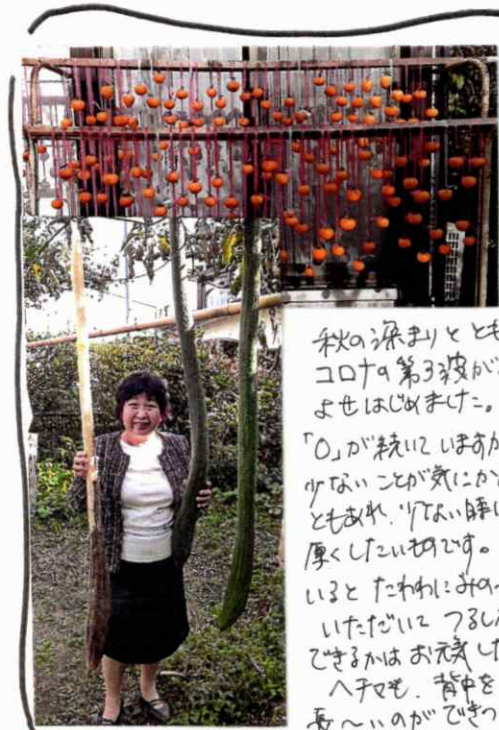 秋の深まりととも
コロナの第3波が
よせはじめました。
「0」が続いていますが
少ないことが気にか
ともあれ、少ない時に
厚くしたいものです。
いると たわわにみの
いただいて つるし
できるかはお天気した
ヘチマも、背中を
長〜いのができ